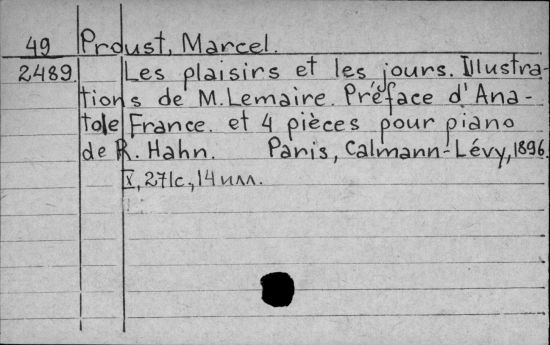 49 Proust, Marcel.
2489. Les plaisirs et les jours. Illustra-
tions de M. Lemaire. Préface d'Ana-
tole France. et 4 pièces pour piano
de R. Hahn. Paris, Calmann-Lévy, 1896.
X, 271с., 14 илл.